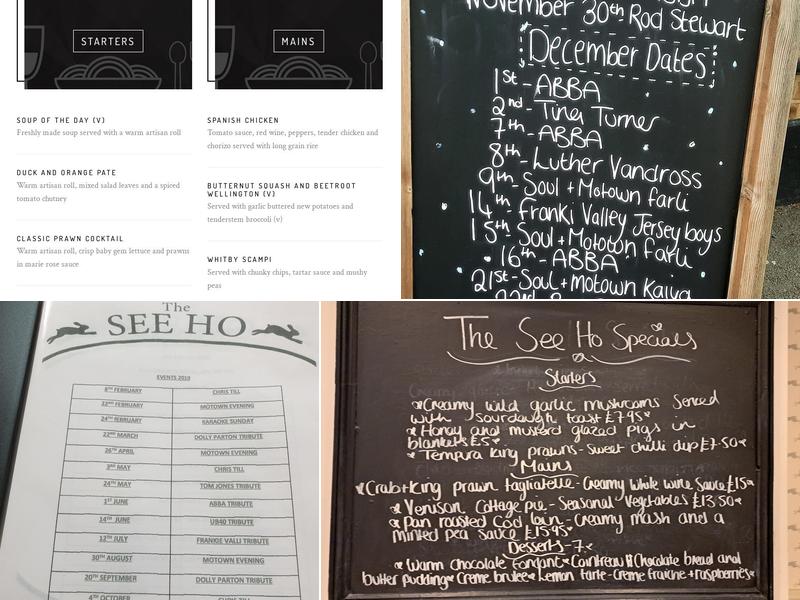 STARTERS
SOUP OF THE DAY (V)
Freshly made soup served with a warm artisan roll
DUCK AND ORANGE PATE
Warm artisan roll, mixed salad leaves and a spiced
tomato chutney
CLASSIC PRAWN COCKTAIL
Warm artisan roll, crisp baby gem lettuce and prawns
in marie rose sauce
MAINS
SPANISH CHICKEN
Tomato sauce, red wine, peppers, tender chicken and
chorizo served with long grain rice
BUTTERNUT SQUASH AND BEETROOT
WELLINGTON (V)
Served with garlic buttered new potatoes and
tenderstem broccoli (v)
WHITBY SCAMPI
Served with chunky chips, tartar sauce and mushy
peas
November 30th Rod Stewart
December Dates
1st - ABBA
2nd - Tina Turner
7th - ABBA
8th - Luther Vandross
9th - Soul + Motown farli
14th - Franki Valley Jersey boys
15th - Soul + Motown farli
16th - ABBA
21st - Soul + Motown Kaiya
The
SEE HO
EVENTS 2019
8TH FEBRUARY CHRIS TILL
22ND FEBRUARY MOTOWN EVENING
24TH FEBRUARY KARAOKE SUNDAY
22ND MARCH DOLLY PARTON TRIBUTE
26TH APRIL MOTOWN EVENING
3RD MAY CHRIS TILL
24TH MAY TOM JONES TRIBUTE
1ST JUNE ABBA TRIBUTE
14TH JUNE UB40 TRIBUTE
12TH JULY FRANKIE VALLI TRIBUTE
30TH AUGUST MOTOWN EVENING
20TH SEPTEMBER DOLLY PARTON TRIBUTE
4TH OCTOBER CHRIS TILL
The See Ho Specials
Starters
*Creamy wild garlic mushrooms served
with sourdough toast £7.95*
* Honey and musterd glazed pigs in
blankets £5*
* Tempura King prawns - sweet chilli dip £7.50*
Mains
*Crab + King prawn tagliatelle - Creamy white wine sauce £15*
* Venison Cottage pie - Seasonal vegetables £13.50*
* Pan roasted Cod loin - Creamy mash and a
minted pea sauce £15.95*
Desserts - 7.*
* Warm chocolate fondant * Cointreau & Chocolate bread and
butter pudding * Creme brulee * Lemon tarte - Creme fraiche + raspberries*